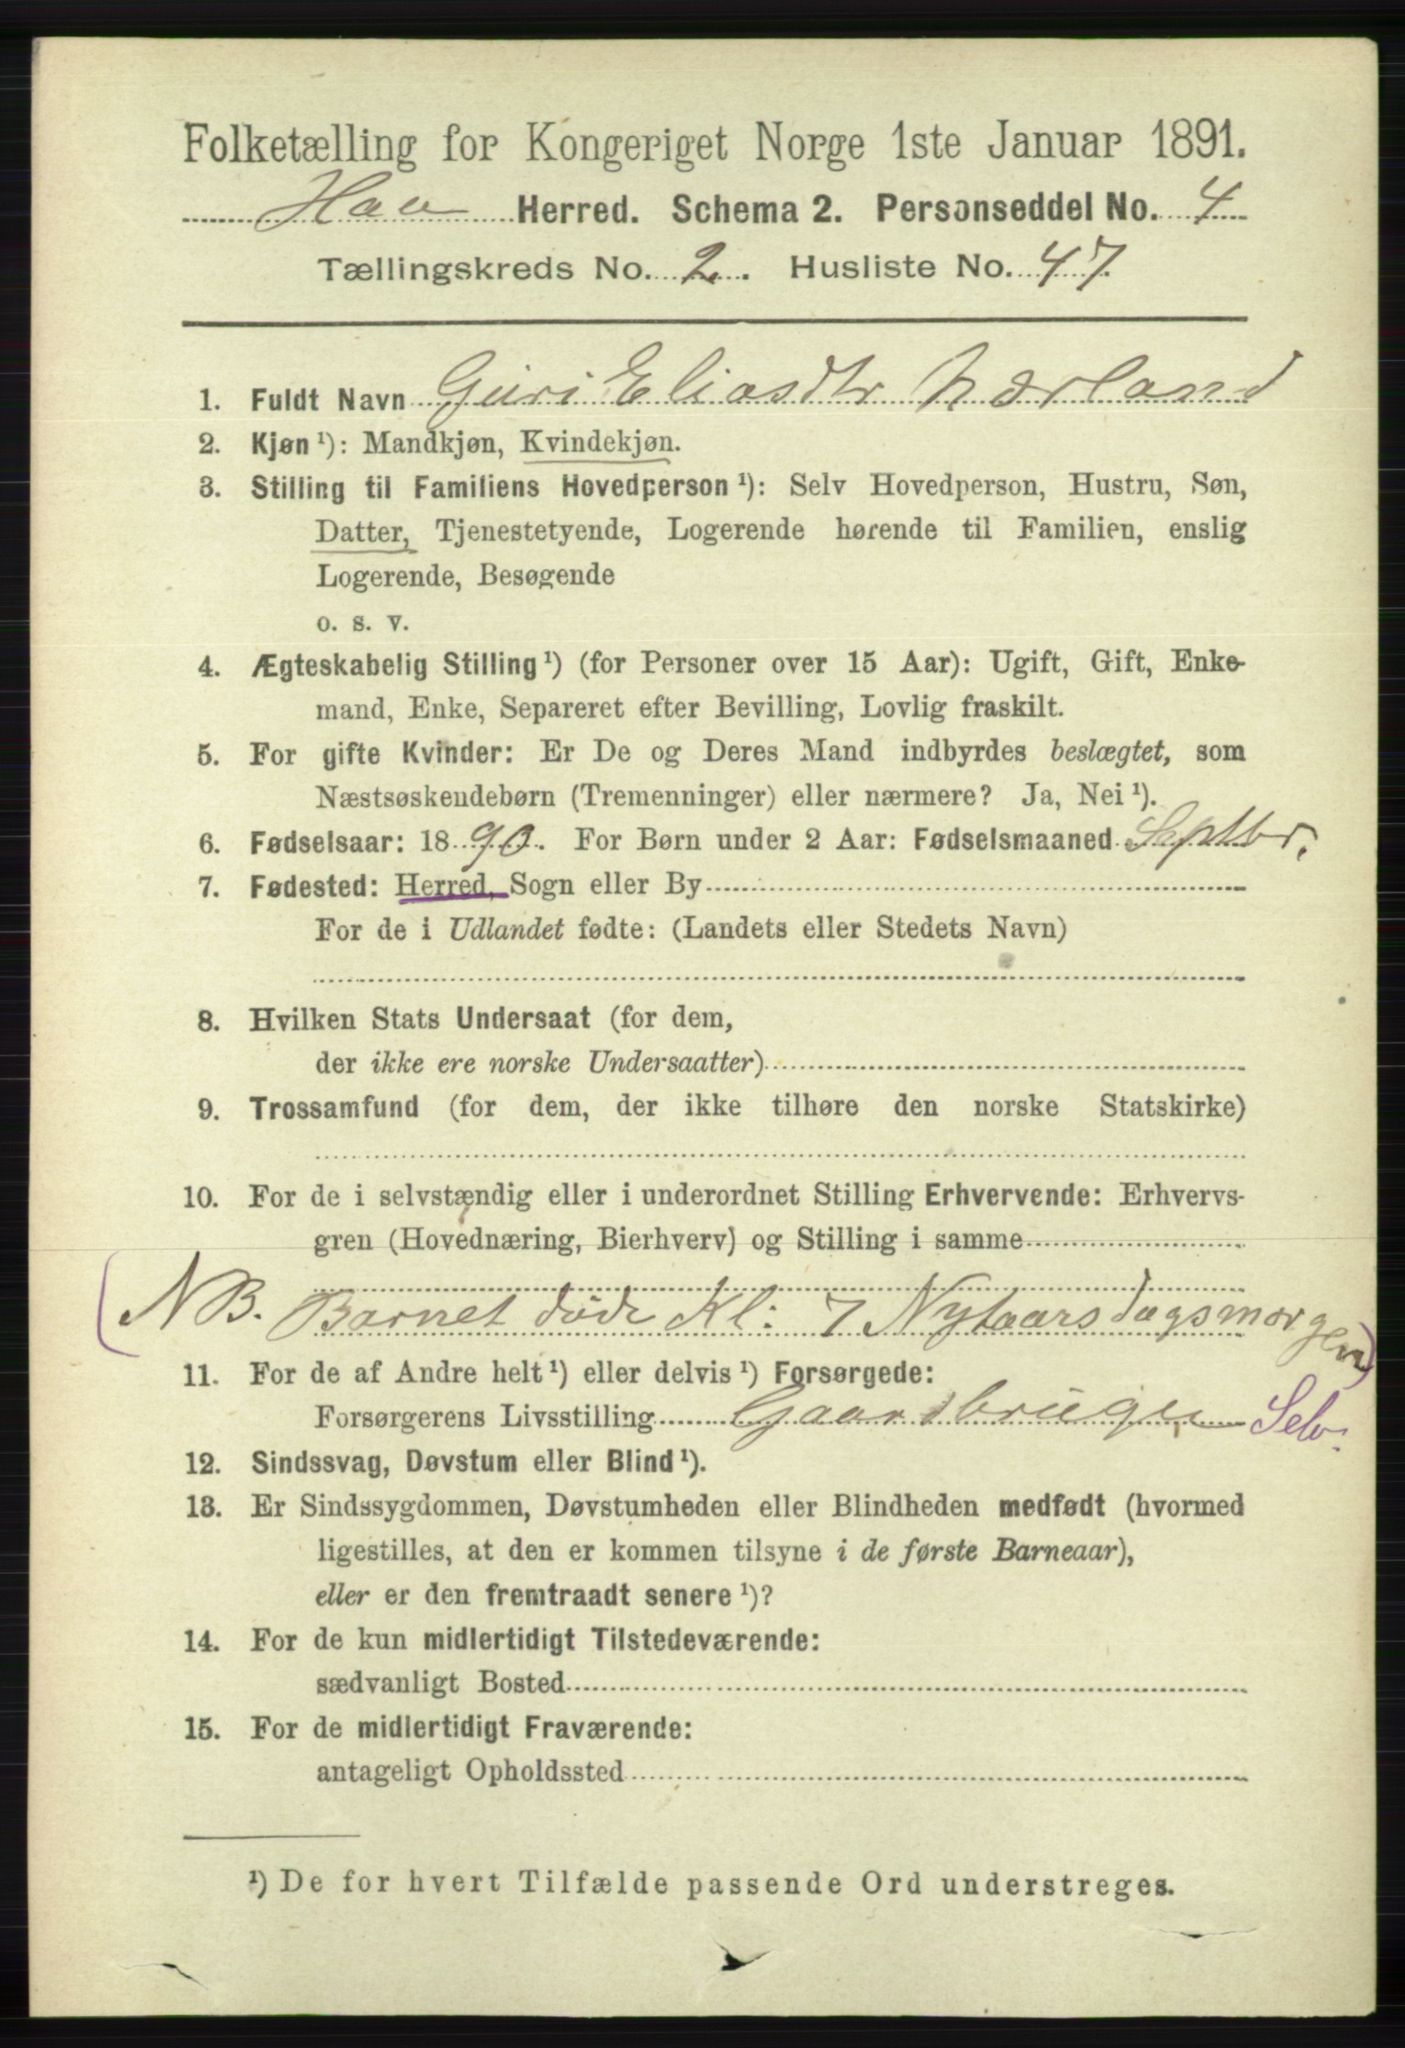 Folketælling for Kongeriget Norge 1ste Januar 1891.
Haa Herred. Schema 2. Personseddel No. 4
Tællingskreds No. 2. Husliste No. 47
1. Fuldt Navn Guri Eliasdtr Nærland
2. Kjøn ¹): Mandkjøn, Kvindekjøn.
3. Stilling til Familiens Hovedperson ¹): Selv Hovedperson, Hustru, Søn,
Datter, Tjenestetyende, Logerende hørende til Familien, enslig
Logerende, Besøgende
o. s. v.
4. Ægteskabelig Stilling ¹) (for Personer over 15 Aar): Ugift, Gift, Enke-
mand, Enke, Separeret efter Bevilling, Lovlig fraskilt.
5. For gifte Kvinder: Er De og Deres Mand indbyrdes beslægtet, som
Næstsøskendebørn (Tremenninger) eller nærmere? Ja, Nei ¹).
6. Fødselsaar: 1890. For Børn under 2 Aar: Fødselsmaaned Septbr.
7. Fødested: Herred, Sogn eller By
For de i Udlandet fødte: (Landets eller Stedets Navn)
8. Hvilken Stats Undersaat (for dem,
der ikke ere norske Undersaatter)
9. Trossamfund (for dem, der ikke tilhøre den norske Statskirke)
10. For de i selvstændig eller i underordnet Stilling Erhvervende: Erhvervs-
gren (Hovednæring, Bierhverv) og Stilling i samme
(NB. Barnet døde Kl: 7 Nytaarsdagsmorgen)
11. For de af Andre helt ¹) eller delvis ¹) Forsørgede:
Forsørgerens Livsstilling Gaardbruger Selv:
12. Sindssvag, Døvstum eller Blind ¹).
13. Er Sindssygdommen, Døvstumheden eller Blindheden medfødt (hvormed
ligestilles, at den er kommen tilsyne i de første Barneaar),
eller er den fremtraadt senere ¹)?
14. For de kun midlertidigt Tilstedeværende:
sædvanligt Bosted
15. For de midlertidigt Fraværende:
antageligt Opholdssted
¹) De for hvert Tilfælde passende Ord understreges.